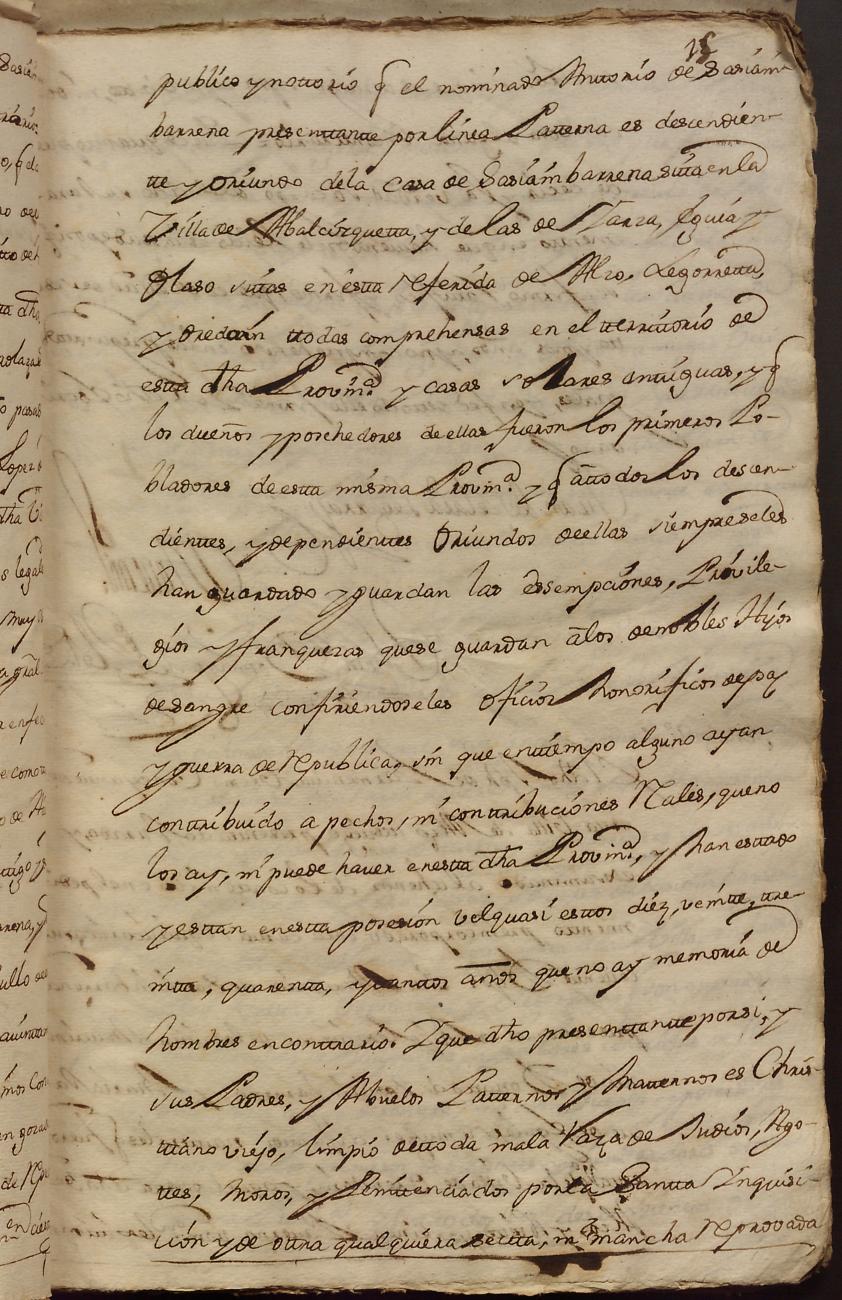 15
publico y nottorio q̃ el nominado Anttonio de Sasiam-
barrena presenttante por linea Patterna es descendien-
tte y oriundo de la casa de Sasiambarrena sita en la
Villa de Abalcizquetta, y de las de Yarza, Eguia y
Olaso sitas en estta referida de Alzo, Legorretta,
y Oredain ttodas comprehensas en el tterrittorio de
estta dha Provinᵃ y casas solares anttiguas, y q̃
los dueños y poschedores de ellas fueron los primeros Po-
bladores de estta misma Provinᵃ y q̃ a ttodos los descen-
dienttes, y dependienttes Oriundos de ellas siempre seles
han guardado y guardan las essempciones, Privile-
gios y franquezas que se guardan a los de nobles Hijos
de sangre confiriendoseles oficios honorificos de paz
y guerra de republica, sin que en ttiempo alguno ayan
conttribuido a pechos, ni conttribuciones Rales, que no
los ay, ni puede haver en estta dha Provinᵃ, y han esttado
y esttan en estta posesion vel quasi esttos diez, veintte, tre-
intta, quarentta, y tanttos años que no ay memoria de
hombres en conttrario. Y que dho presenttantte por si, y
sus Padres, y Abuelos Patternos y Matternos es Chris-
ttiano viejo, limpio de ttoda mala Raza de Judios, Ago-
ttes, Moros, y Penittenciados por la Santta Inquisi-
cion y de ottra qualquiera sectta, ni mancha reprovada